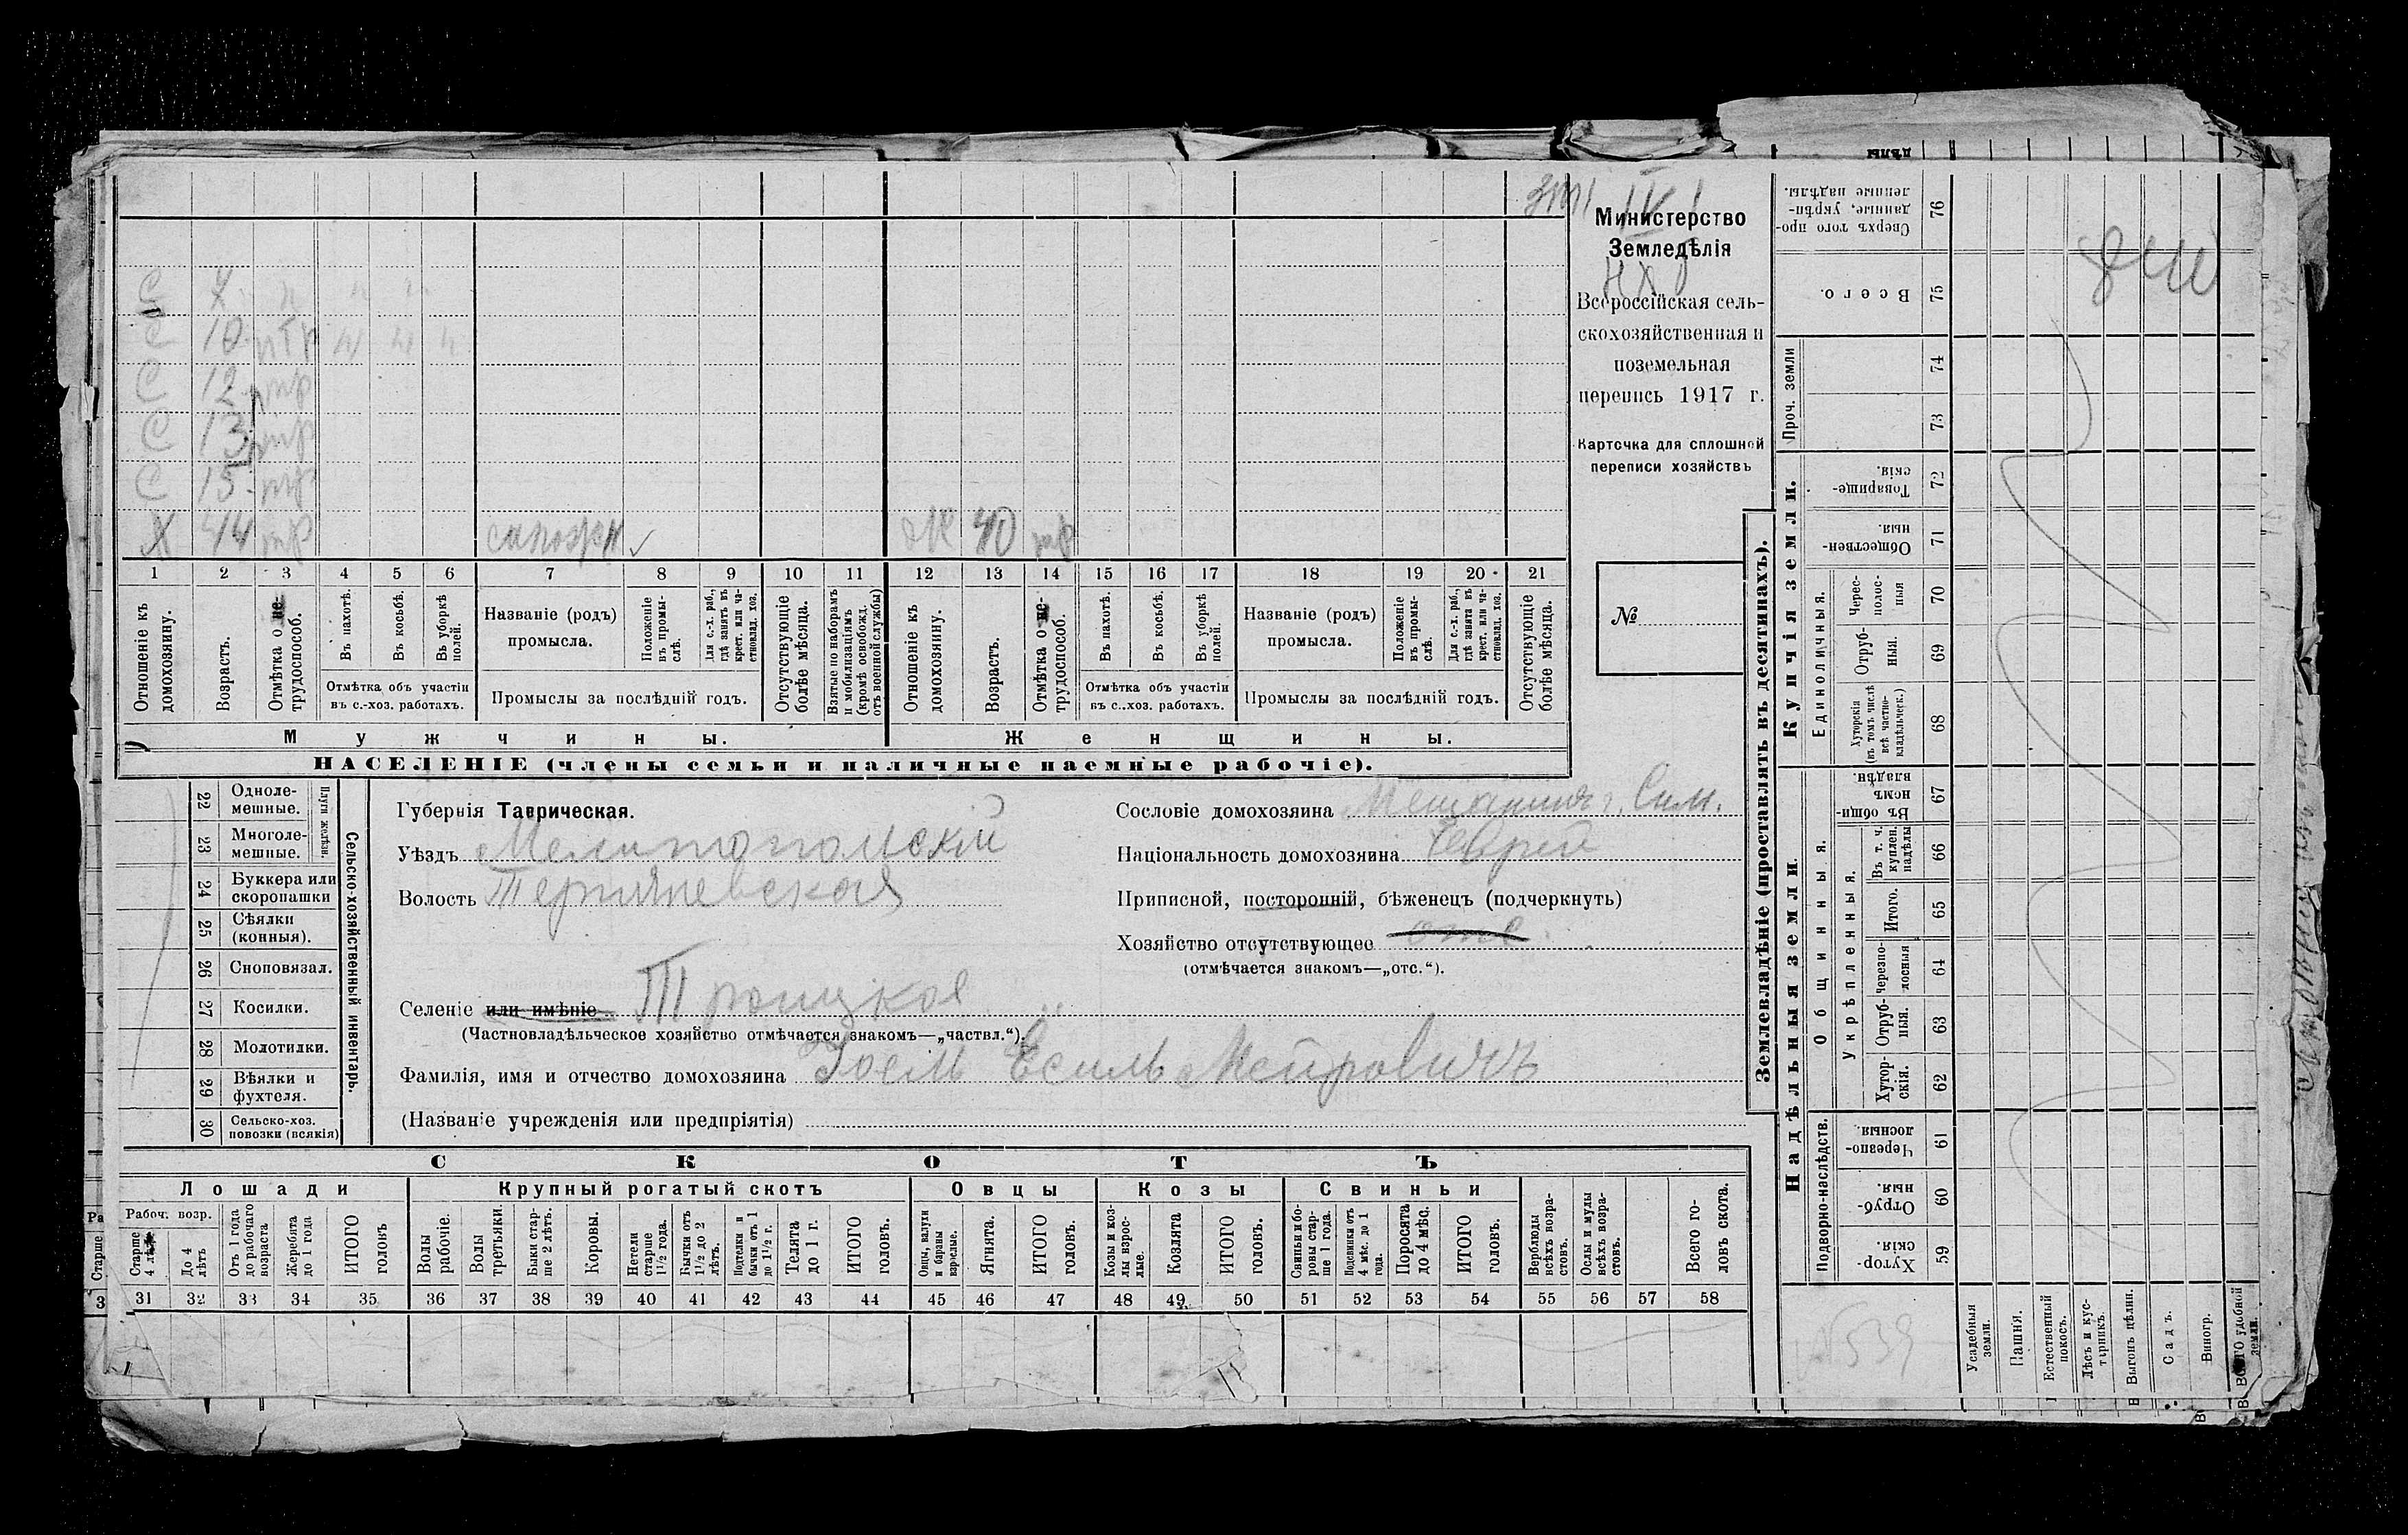 Министерство
Земледѣлія
Всероссійская сель-
скохозяйственная и
поземельная
перепись 1917 г.
Карточка для сплошной
переписи хозяйствъ
№
С 12
С 13
С 15
Х 44 тр сапожн Ж 40
1 2 3 4 5 6 7 8 9 10 11 12 13 14 15 16 17 18 19 20 21
Отношеніе къ домохозяину.
Возрастъ.
Отмѣтка о не-трудоспособ.
Въ пахотѣ.
Въ косьбѣ.
Въ уборкѣ полей.
Отмѣтка объ участіи
въ с.-хоз. работахъ.
Названіе (родъ)
промысла.
Положеніе въ промы-слѣ.
Для с.-х. раб., гдѣ занятъ въ крест. или ча-стновлад. хоз.
Промыслы за послѣдній годъ.
Отсутствующіе болѣе мѣсяца.
Взятые по наборамъ и мобилизаціямъ (кромѣ освобожд. отъ военной службы)
Отношеніе къ домохозяину.
Возрастъ.
Отмѣтка о не-трудоспособ.
Въ пахотѣ.
Въ косьбѣ.
Въ уборкѣ полей.
Отмѣтка объ участіи
въ с.-хоз. работахъ.
Названіе (родъ)
промысла.
Положеніе въ промы-слѣ.
Для с.-х. раб., гдѣ занятъ въ крест. или ча-стновлад. хоз.
Промыслы за послѣдній годъ.
Отсутствующіе болѣе мѣсяца.
Мужчины. Женщины.
НАСЕЛЕНІЕ (члены семьи и наличные наемные рабочіе).
22 Одноле-мешные.
23 Многоле-мешные.
Плуги желѣзн.
24 Буккера или скоропашки
25 Сѣялки (конныя).
26 Сноповязал.
27 Косилки.
28 Молотилки.
29 Вѣялки и фухтеля.
30 Сельско-хоз. повозки (всякія)
Сельско-хозяйственный инвентарь.
Губернія Таврическая.
Уѣздъ Мелитопольскій
Волость Терпяневская
Селеніе или имѣніе Троицкое
(Частновладѣльческое хозяйство отмѣчается знакомъ—„частвл.“).
Фамилія, имя и отчество домохозяина Мейровичъ
(Названіе учрежденія или предпріятія)
Сословіе домохозяина Мещанинъ г. Сим.
Національность домохозяина Еврей
Приписной, посторонній, бѣженецъ (подчеркнуть)
Хозяйство отсутствующее отс
(отмѣчается знакомъ—„отс.“).
СКОТЪ
Лошади Крупный рогатый скотъ Овцы Козы Свиньи
Рабоч. возр.
Старше 4 лѣтъ
До 4 лѣтъ
Отъ 1 года до рабочаго возраста
Жеребята до 1 года
ИТОГО головъ
Волы рабочіе.
Волы третьяки.
Быки стар-ше 2 лѣтъ.
Коровы.
Нетели старше 1½ года.
Бычки отъ 1½ до 2 лѣтъ.
Подтелки и бычки отъ 1 до 1½ г.
Телята до 1 г.
ИТОГО головъ.
Овцы, валухи и бараны взрослые.
Ягнята.
ИТОГО головъ.
Козы и коз-лы взрос-лые.
Козлята
ИТОГО головъ.
Свиньи и бо-ровы стар-ше 1 года.
Подсвинки отъ 4 мѣс. до 1 года.
Поросята до 4 мѣс.
ИТОГО головъ.
Верблюды всѣхъ возра-стовъ.
Ослы и мулы всѣхъ возра-стовъ.
Всего го-ловъ скота.
31 32 33 34 35 36 37 38 39 40 41 42 43 44 45 46 47 48 49 50 51 52 53 54 55 56 57 58
Землевладѣніе (проставлять въ десятинахъ).
Купчія земли.
Надѣльныя земли.
Сверхъ того про-данные, укрѣп-ленные надѣлы. 76
Всего. 75
Проч. земли 74
73
Товарище-скія. 72
Обществен-ныя. 71
Единоличныя.
Черес-полос-ныя 70
Отруб-ныя. 69
Хуторскія (въ томъ числѣ всѣ частно-владѣльческ.) 68
Общинныя.
Въ общи-номъ владѣн. 67
Укрѣпленныя.
Въ т. ч. куплен. надѣлы 66
Итого. 65
Черезпо-лосныя 64
Отруб-ныя. 63
Хутор-скія. 62
Подворно-наслѣдств.
Черезпо-лосныя 61
Отруб-ныя. 60
Хутор-скія. 59
Усадебныя земли.
Пашня.
Естественный покосъ.
Лѣсъ и кус-тарникъ.
Выгонъ цѣлин.
Садъ.
Виногр.
ВСЕГО удобной земли.
№539